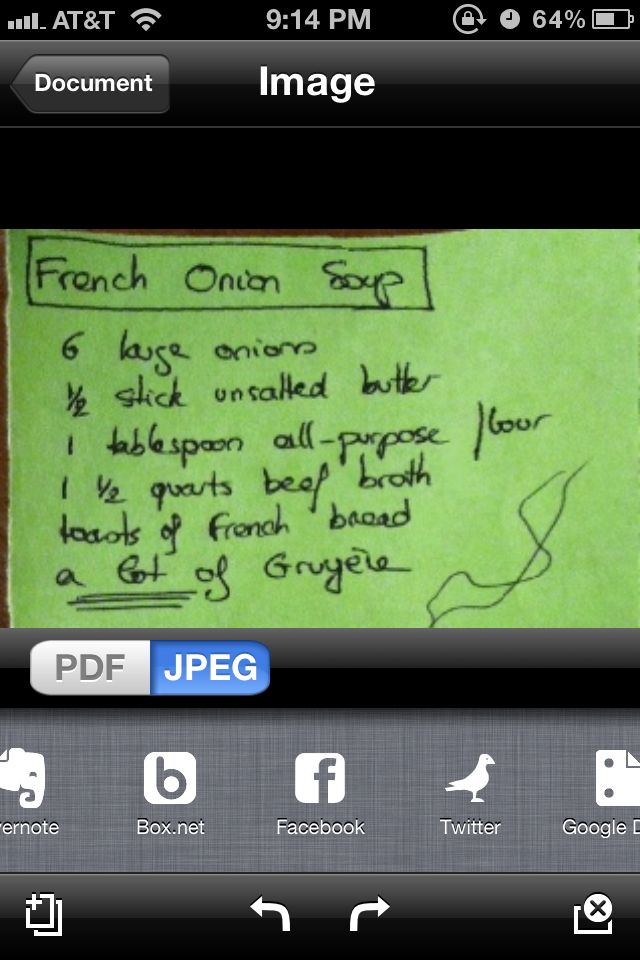 AT&T 9:14 PM 64%
Document Image
French Onion Soup
6 large onions
½ stick unsalted butter
1 tablespoon all-purpose flour
1 ½ quarts beef broth
toasts of French bread
a lot of Gruyère
PDF JPEG
vernote Box.net Facebook Twitter Google D